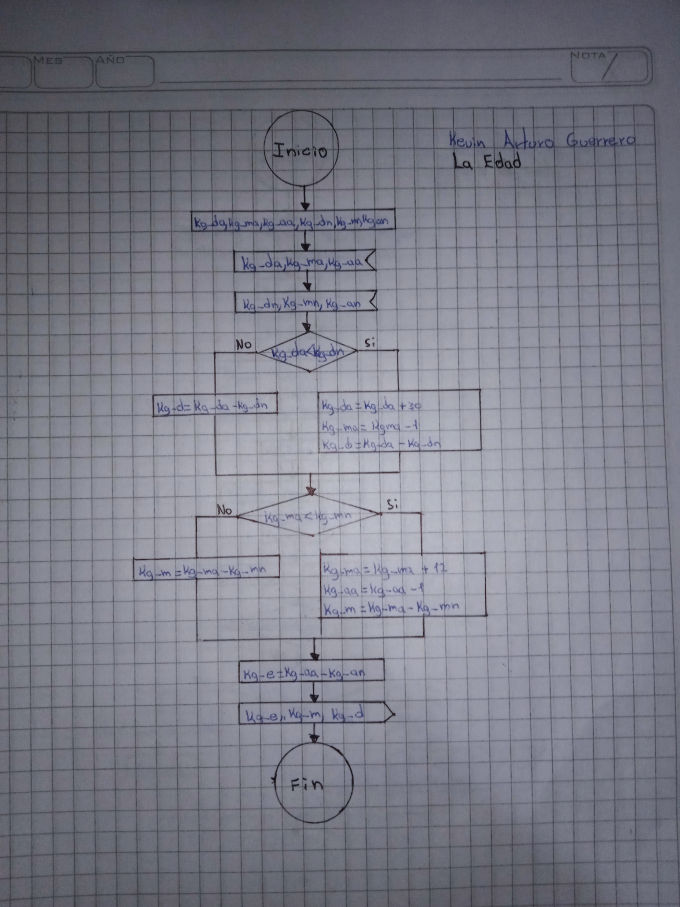 MES AÑO NOTA
Kevin Arturo Guerrero
La Edad
Inicio
Kg-da,Kg-ma,Kg-aa,Kg-dn,Kg-m,Kgan
Kg-da,Kg-ma,Kg-aa
Kg-dn,Kg-mn,Kg-an
No Si
Kg-da<Kg-dn
Kg-d=Kg-da-Kg-dn
Kg-da=Kg-da+30
Kg-ma=Kgma-1
Kg-d=Kg-da-Kg-dn
No Si
Kg-ma<Kg-mn
Kg-m=Kg-ma-Kg-mn
Kg-ma=Kg-ma+12
Kg-aa=Kg-aa-1
Kg-m=Kg-ma-Kg-mn
Kg-e=Kg-aa-Kg-an
Kg-e,Kg-m,Kg-d
Fin